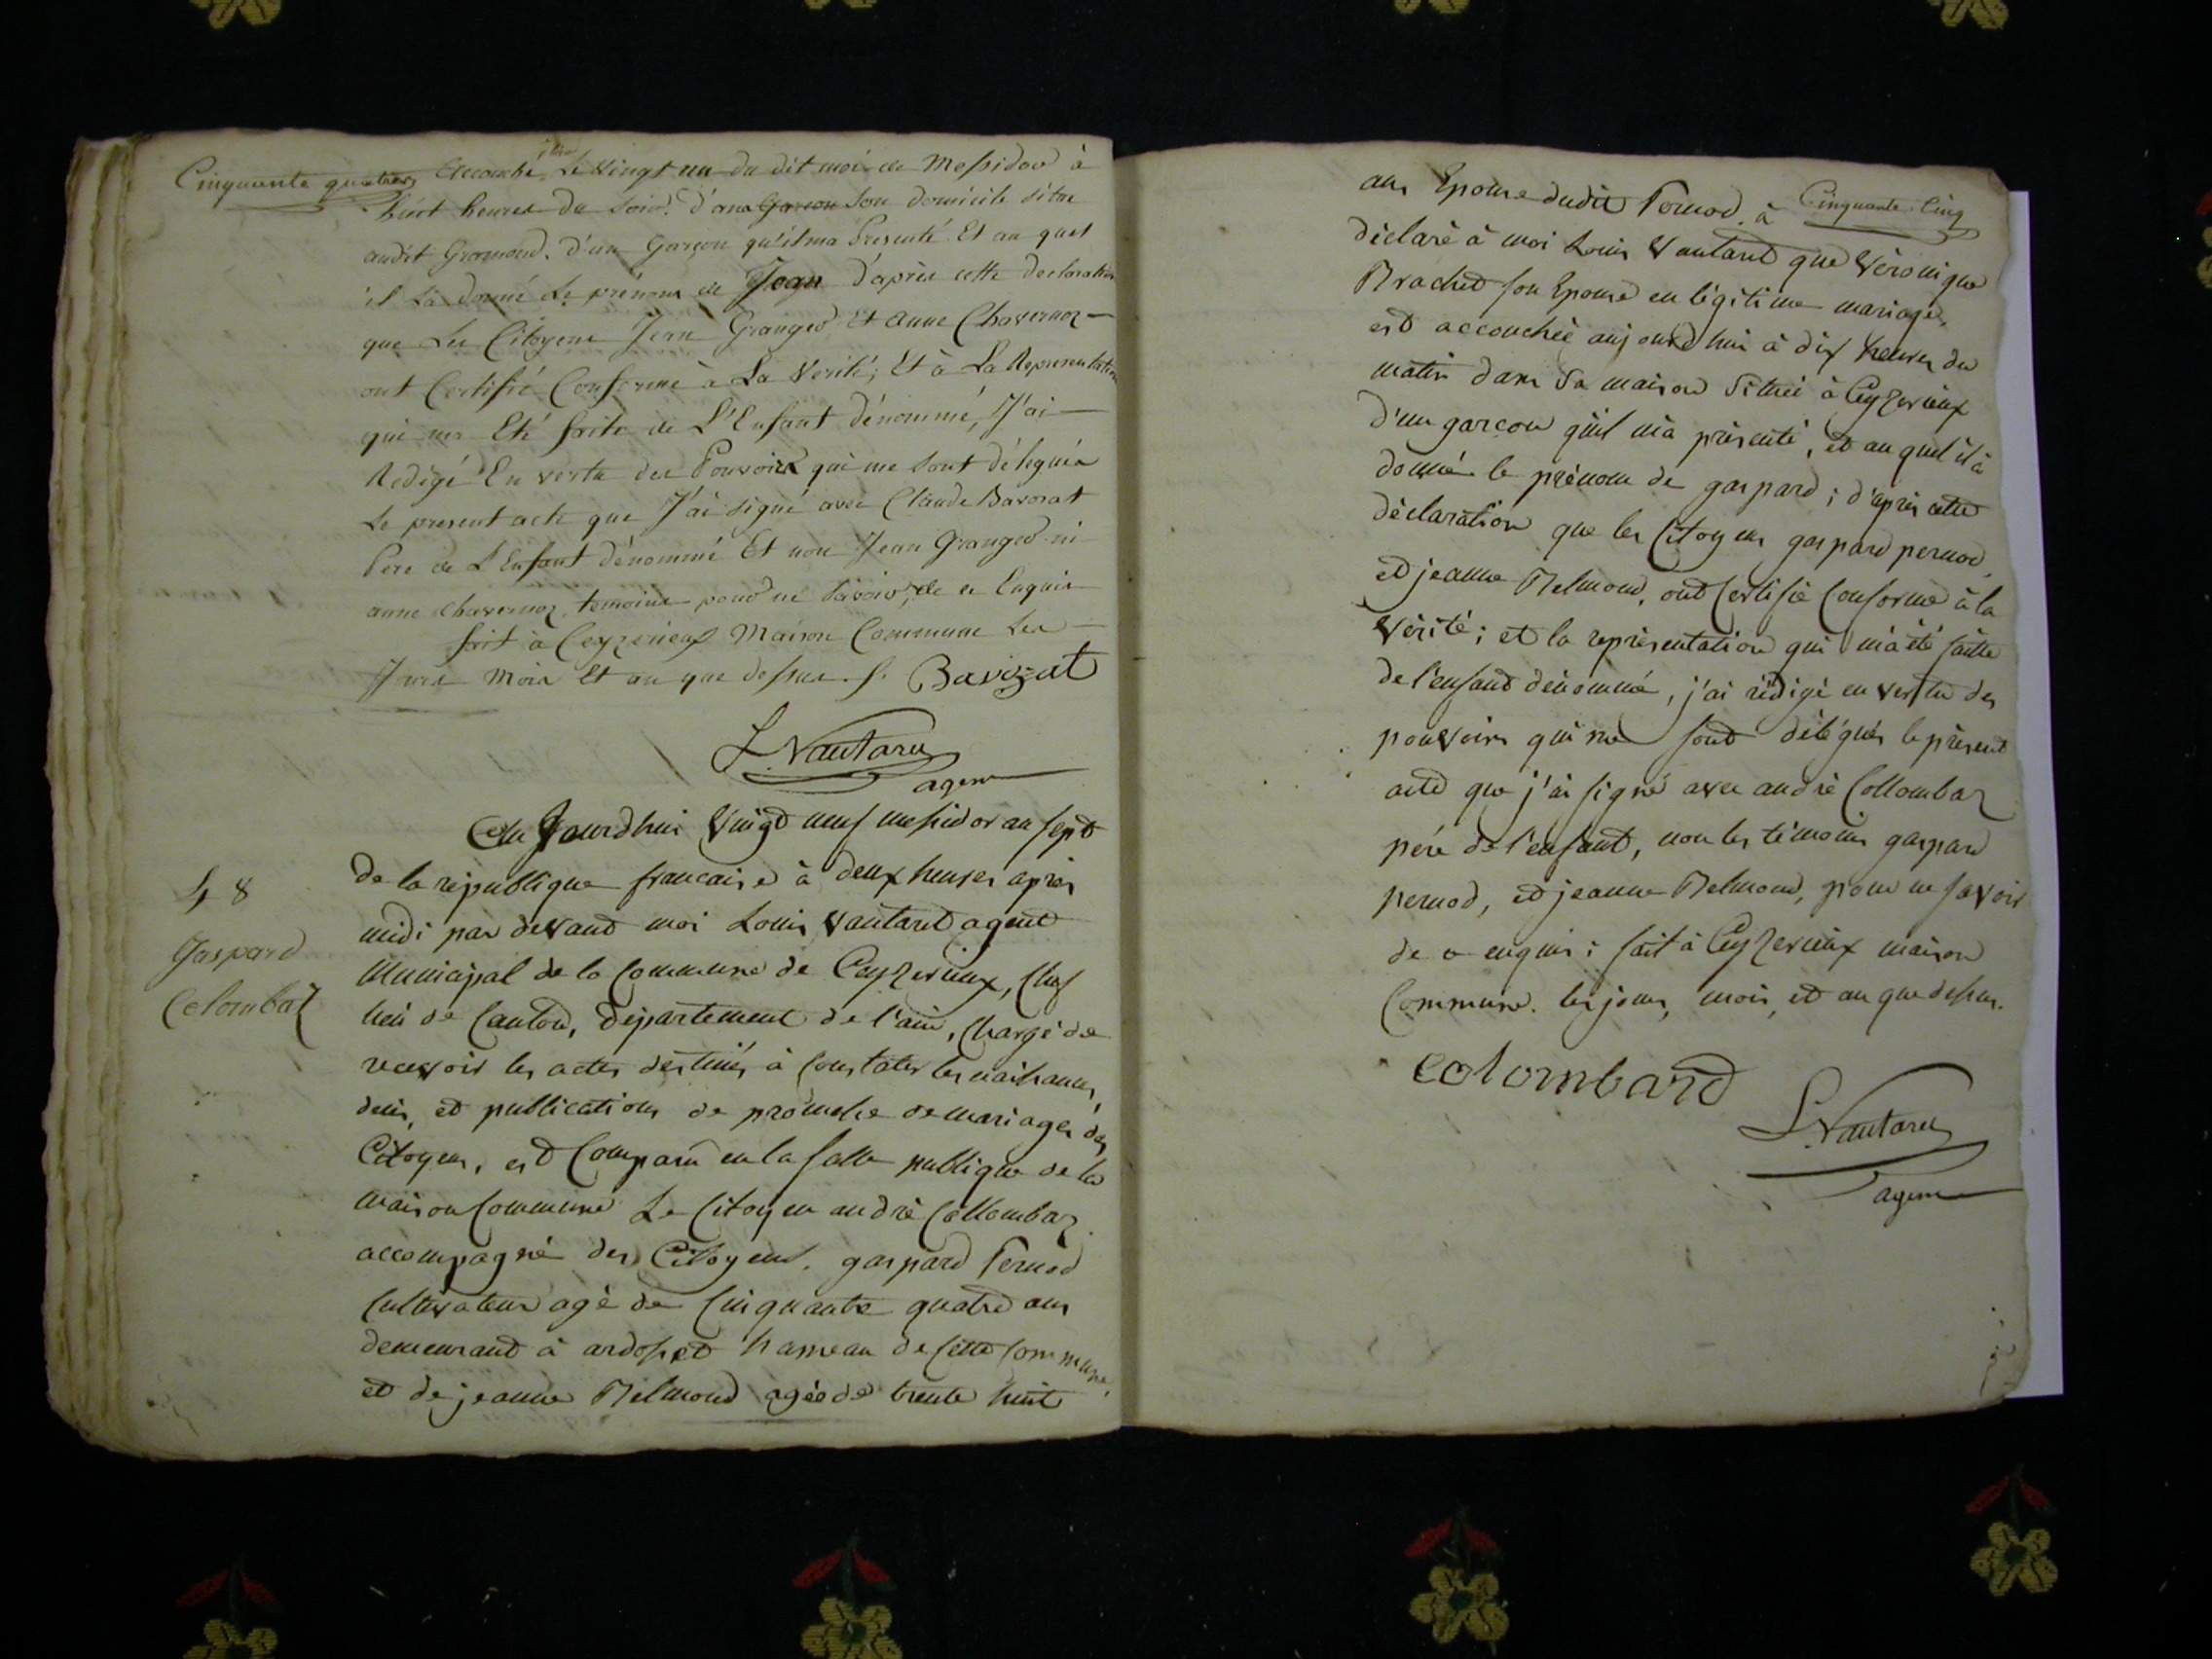 Cinquante quatre
accouché le vingt un du dit moi de Messidor à
huit heures du soir. d'ans garcon son domicile situe
audit Gromond. d'un garçon qu'il ma Presenté Et au quel
il la donné le prénom de Jean d'après cette declaration
que Les Citoyens Jean Granger Et anne Chavernoz
ont Certifié Conforme à La Verité; Et à La Representation
qui ma Eté faite de L'Enfant dénommé, J'ai
Redigé En vertu des Pouvoirs qui me sont délegués
Le present acte que J'ai signé avec Claude Bavozat
Pere de L'Enfant dénommé Et non Jean Granger ni
anne Chavernoz temoins pour ne savoir, de ce Enquis
fait à Ceyzerieux Maison Commune Les
Jours Mois Et an que dessus. f. Bavozat
L. Vautaret
agent
48
Gaspard
Colombaz
Au Jourdhui vingt neuf messidor an sept
de la république francaise à deux heures après
midi par devant moi Louis Vautaret agent
Municipal de la Commune de Ceyzerieux, Chef
lieu de Canton, département de l'ain, Chargé de
recevoir les actes destinés à Constater les naissances,
deces, et publications de promesse de mariages des
Citoyens, est Comparu en la salle publique de la
maison Commune Le Citoyen andré Collombaz
accompagné des Citoyens. gaspard Pernod
Cultivateur agé de Cinquante quatre ans
demeurant à ardosset hameau de cette Commune,
et de jeanne Melmond agée de trente huit
Cinquante Cinq
ans Epouse dudit Pernod. à
déclaré à moi Louis Vautaret que Véronique
Brachet son Epouse en légitime mariage,
est accouchée aujourdhui à dix heures du
matin dans sa maison située à Ceyzerieux
d'un garçon qu'il m'a présenté, et au quel il à
donné le prénom de gaspard; d'après cette
déclaration que les Citoyens gaspard pernod
et jeanne Melmond, ont Certifié Conforme à la
vérité; et la représentation qui m'a été faitte
de l'enfant dénommé, j'ai rédigé en vertu des
pouvoirs qui me sont délégués le présent
acte que j'ai signé avec andré Collombaz
pére de l'enfant, non les témoins gaspard
pernod, et jeanne Melmond, pour ne savoir
de ce enquis: fait à Ceyzerieux maison
Commune. les jour, mois, et an que dessus.
colombard
L. Vautaret
agent